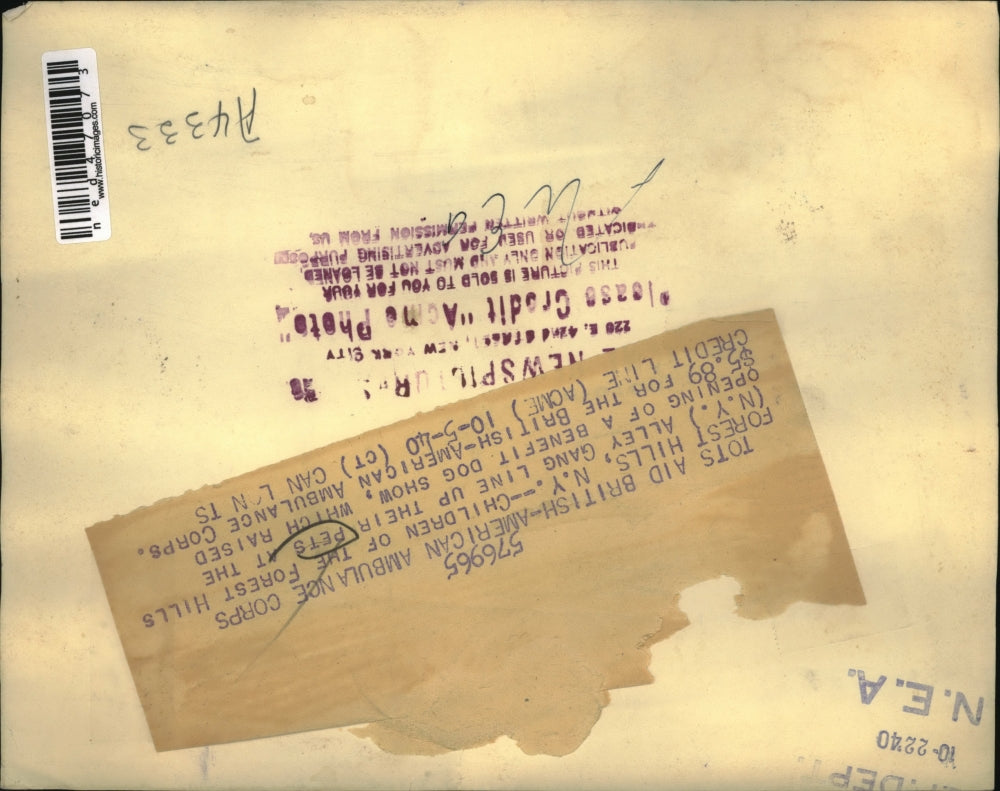 N.E.A.
10-2240
.DEPT.
576965
TOTS AID BRITISH-AMERICAN AMBULANCE CORPS
FOREST HILLS, N.Y.--CHILDREN OF THE FOREST HILLS
(N.Y.) ALLEY GANG LINE UP THEIR PETS AT THE
OPENING OF A BENEFIT DOG SHOW, WHICH RAISED
$5.89 FOR THE BRITISH-AMERICAN AMBULANCE CORPS.
CREDIT LINE (ACME) 10-5-40 (CT) CAN
220 E. 42nd STREET, NEW YORK CITY
Please Credit "Acme Photo"
THIS PICTURE IS SOLD TO YOU FOR YOUR
PUBLICATION ONLY AND MUST NOT BE LOANED
SYNDICATED OR USED FOR ADVERTISING PURPOSES
WITHOUT WRITTEN PERMISSION FROM US.
A4333
www.historicimages.com